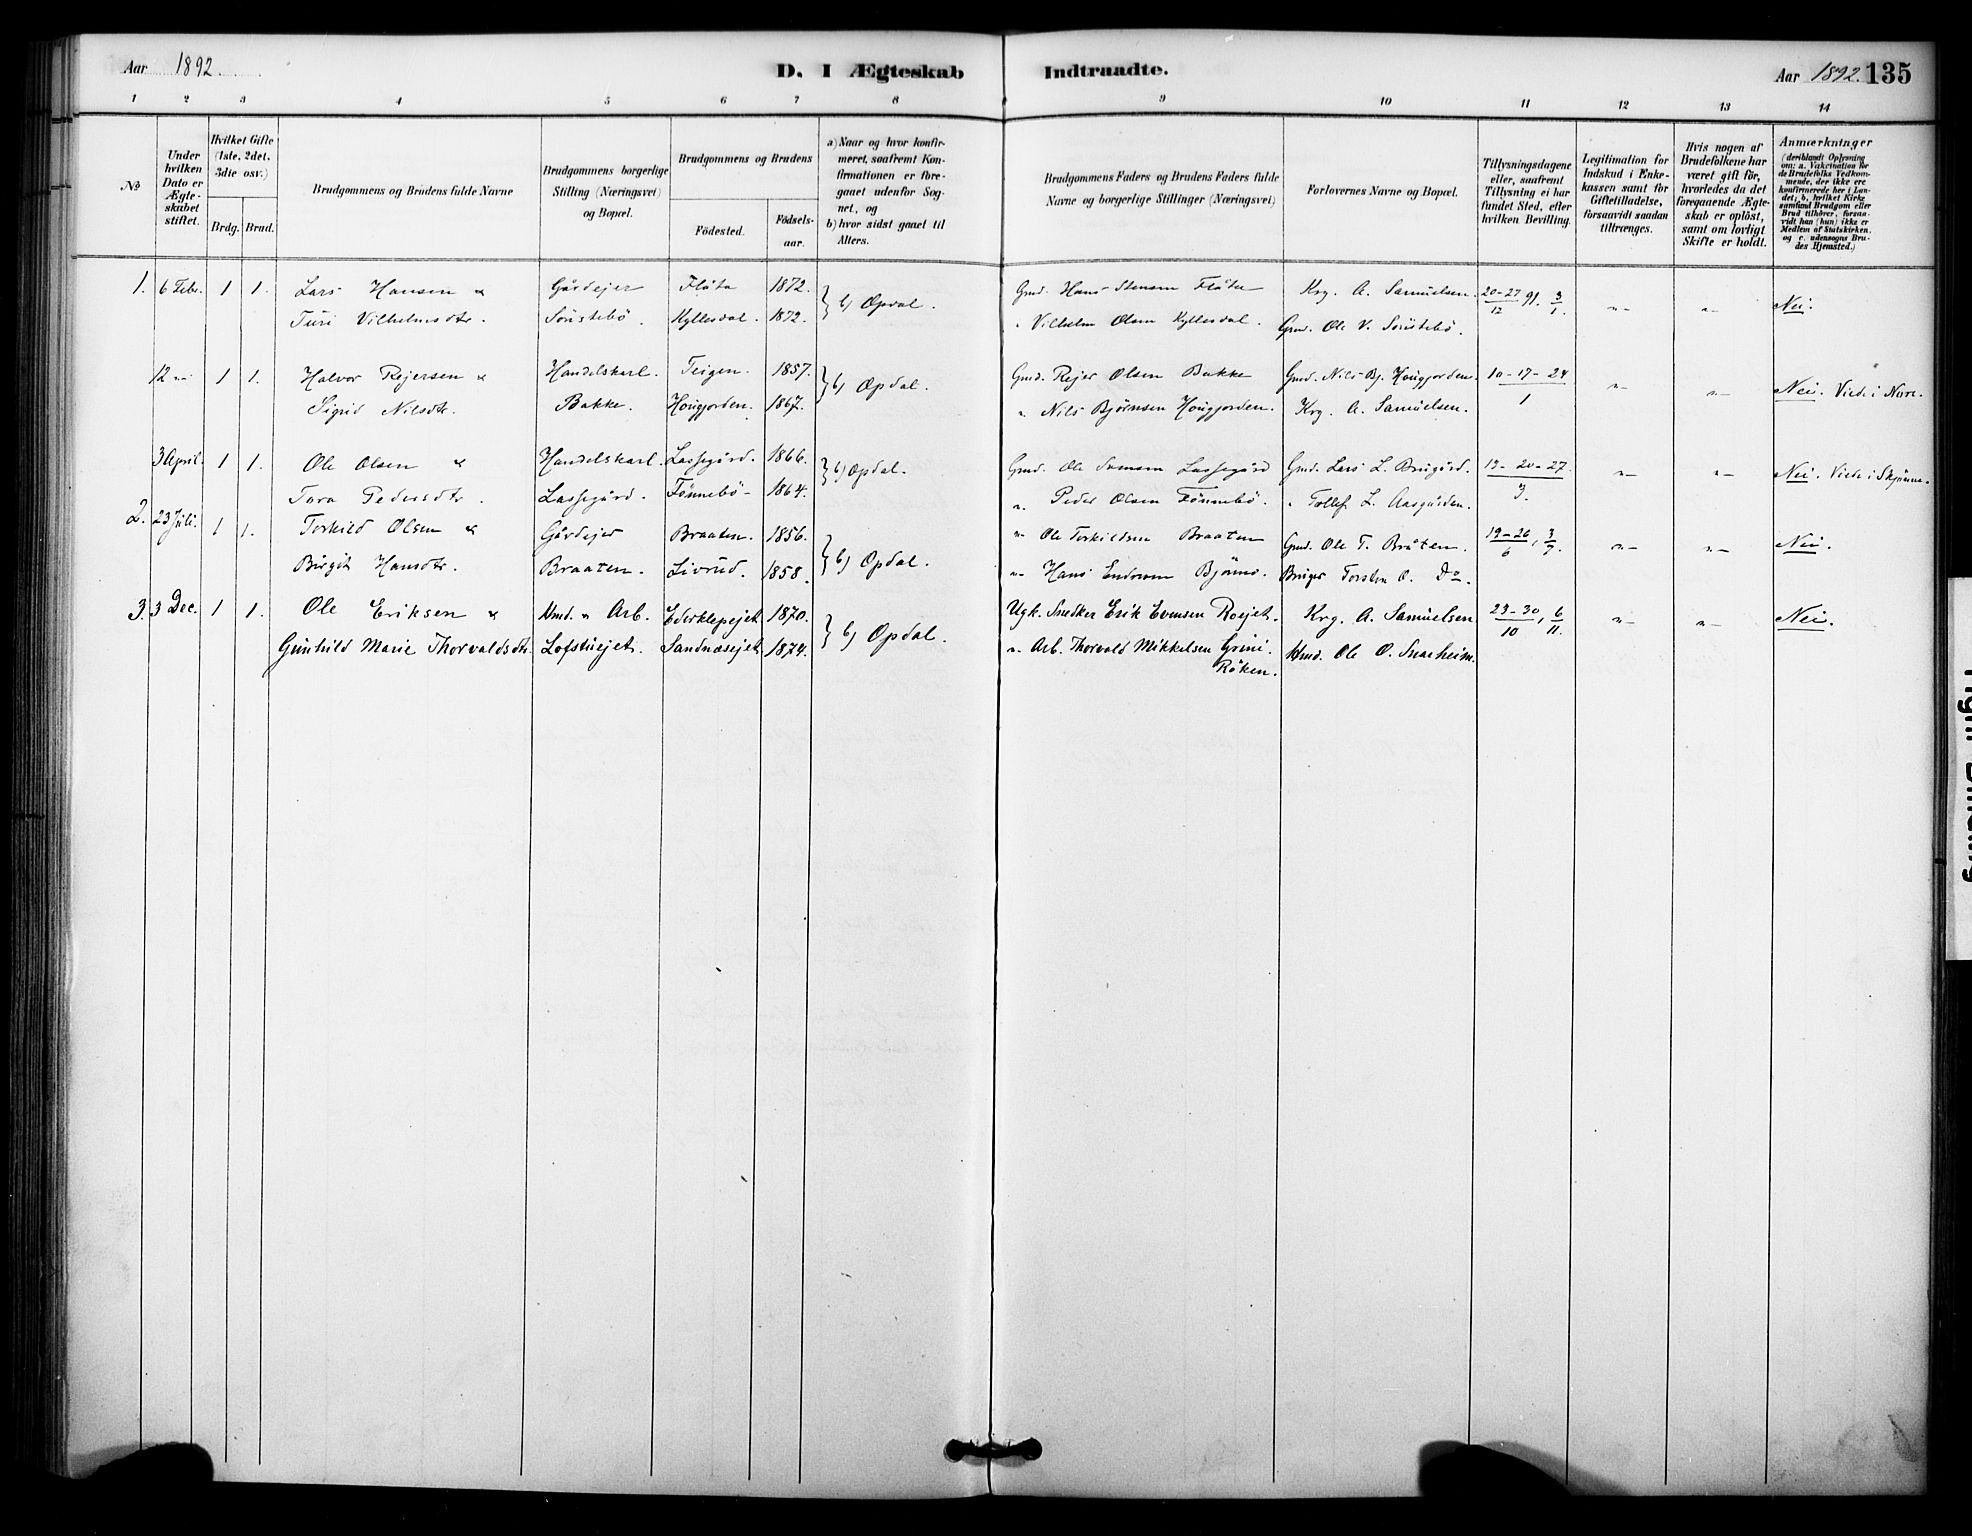 Aar 1892.
D. I Ægteskab
Indtraadte.
Aar 1892. 135
1 2 3 4 5 6 7 8 9 10 11 12 13 14
No
Under
hvilken
Dato er
Ægte-
skabet
stiftet.
Hvilket Gifte
(1ste, 2det,
3die osv.)
Brdg. Brud.
Brudgommens og Brudens fulde Navne
Brudgommens borgerlige
Stilling (Næringsvei)
og Bopæl.
Brudgommens og Brudens
Födested.
Födsels-
aar.
a) Naar og hvor konfir-
meret, saafremt Kon-
firmationen er fore-
gaaet udenfor Sog-
net, og
b) hvor sidst gaaet til
Alters.
Brudgommens Faders og Brudens Faders fulde
Navne og borgerlige Stillinger (Næringsvei)
Forlovernes Navne og Bopæl.
Tillysningsdagene
eller, saafremt
Tillysning ei har
fundet Sted, efter
hvilken Bevilling.
Legitimation for
Indskud i Enke-
kassen samt for
Giftetilladelse,
forsaavidt saadan
tiltrænges.
Hvis nogen af
Brudefolkene har
været gift för,
hvorledes da det
foregaaende Ægte-
skab er oplöst,
samt om lovligt
Skifte er holdt.
Anmærkninger
(deriblandt Oplysning
om: a. Vakcination for
de Brudefolks Vedkom-
mende, der ikke ere
konfirmerede her i Lan-
det; b. hvilket Kirke
samfund Brudgom eller
Brud tilhörer, forsaa-
vidt han (hun) ikke er
Medlem af Statskirken,
og c. udensogns Bru-
des Hjemsted.)
1. 6 Febr. 1 1. Lars Hansen & Gårdejer Flåta 1872. } b) Opdal. Gmd. Hans Stensen Flåta Krg. A. Samuelsen. 20-27/12 91. 3/1. -"- -"- Nei.
Turi Vilhelmsdtr. Söustebö. Kyllesdal. 1872. " Vilhelm Olsen Kyllesdal. Gmd. Ole V. Söustebö.
12 -"- 1 1. Halvor Rejersen & Handelskarl. Teigen. 1857. } b) Opdal. Gmd. Rejer Olsen Bakke Gmd. Nils Bj. Hougjorden. 10-17-24/1 -"- -"- Nei. Viede i Nore.
Sigrid Nilsdtr. Bakke. Hougjorden. 1867. " Nils Bjørnsen Hougjorden. Krg. A. Samuelsen.
3 April. 1 1. Ole Olsen & Handelskarl. Lassegård. 1866. } b) Opdal. Gmd. Ole Lassegård Gmd. Lars L. Brugård. 13-20-27/3. -"- -"- Nei. Viede i Skjønne.
Tora Pedersdtr. Lassegård. Fönnebö- 1864. " Peder Olsen Fönnebö. " Tollef L. Aasgården.
2. 23 Juli. 1 1. Torkild Olsen & Gårdejer Braaten. 1856. } b) Opdal. -"- Ole Torkildsen Braaten Gmd. Ole T. Bråten. 19-26/6, 3/7. -"- -"- Nei.
Birgit Hansdtr. Braaten. Livrud. 1858. -"- Hans Endresen Bjönnö. Bruger Torsten O. Do.
3. 3 Dec. 1 1. Ole Eriksen & Hmd. & Arb. Ederklepejet 1870. } b) Opdal. Ugk. Snedker Erik Evensen Roejet. Krg. A. Samuelsen 23-30/10, 6/11. -"- -"- Nei.
Gunhild Marie Thorvaldsdtr. Loftstuejet. Sandnæsejet 1874. -"- Arb. Thorvald Mikkelsen Grini. Hmd. Ole O. Snarheim.
Röken.